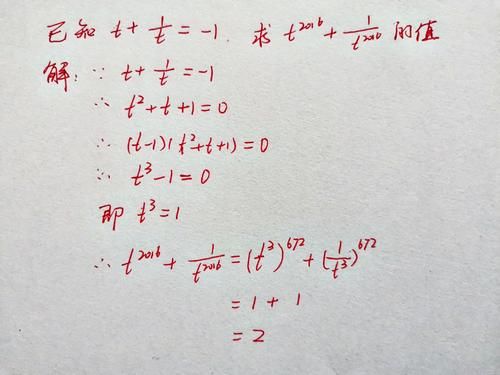 已知 t + 1/t = -1. 求 t^2016 + 1/t^2016 的值
解: ∵ t + 1/t = -1
∴ t² + t + 1 = 0
∴ (t-1)(t²+t+1) = 0
∴ t³ - 1 = 0
即 t³ = 1
∴ t^2016 + 1/t^2016 = (t³)^672 + (1/t³)^672
= 1 + 1
= 2